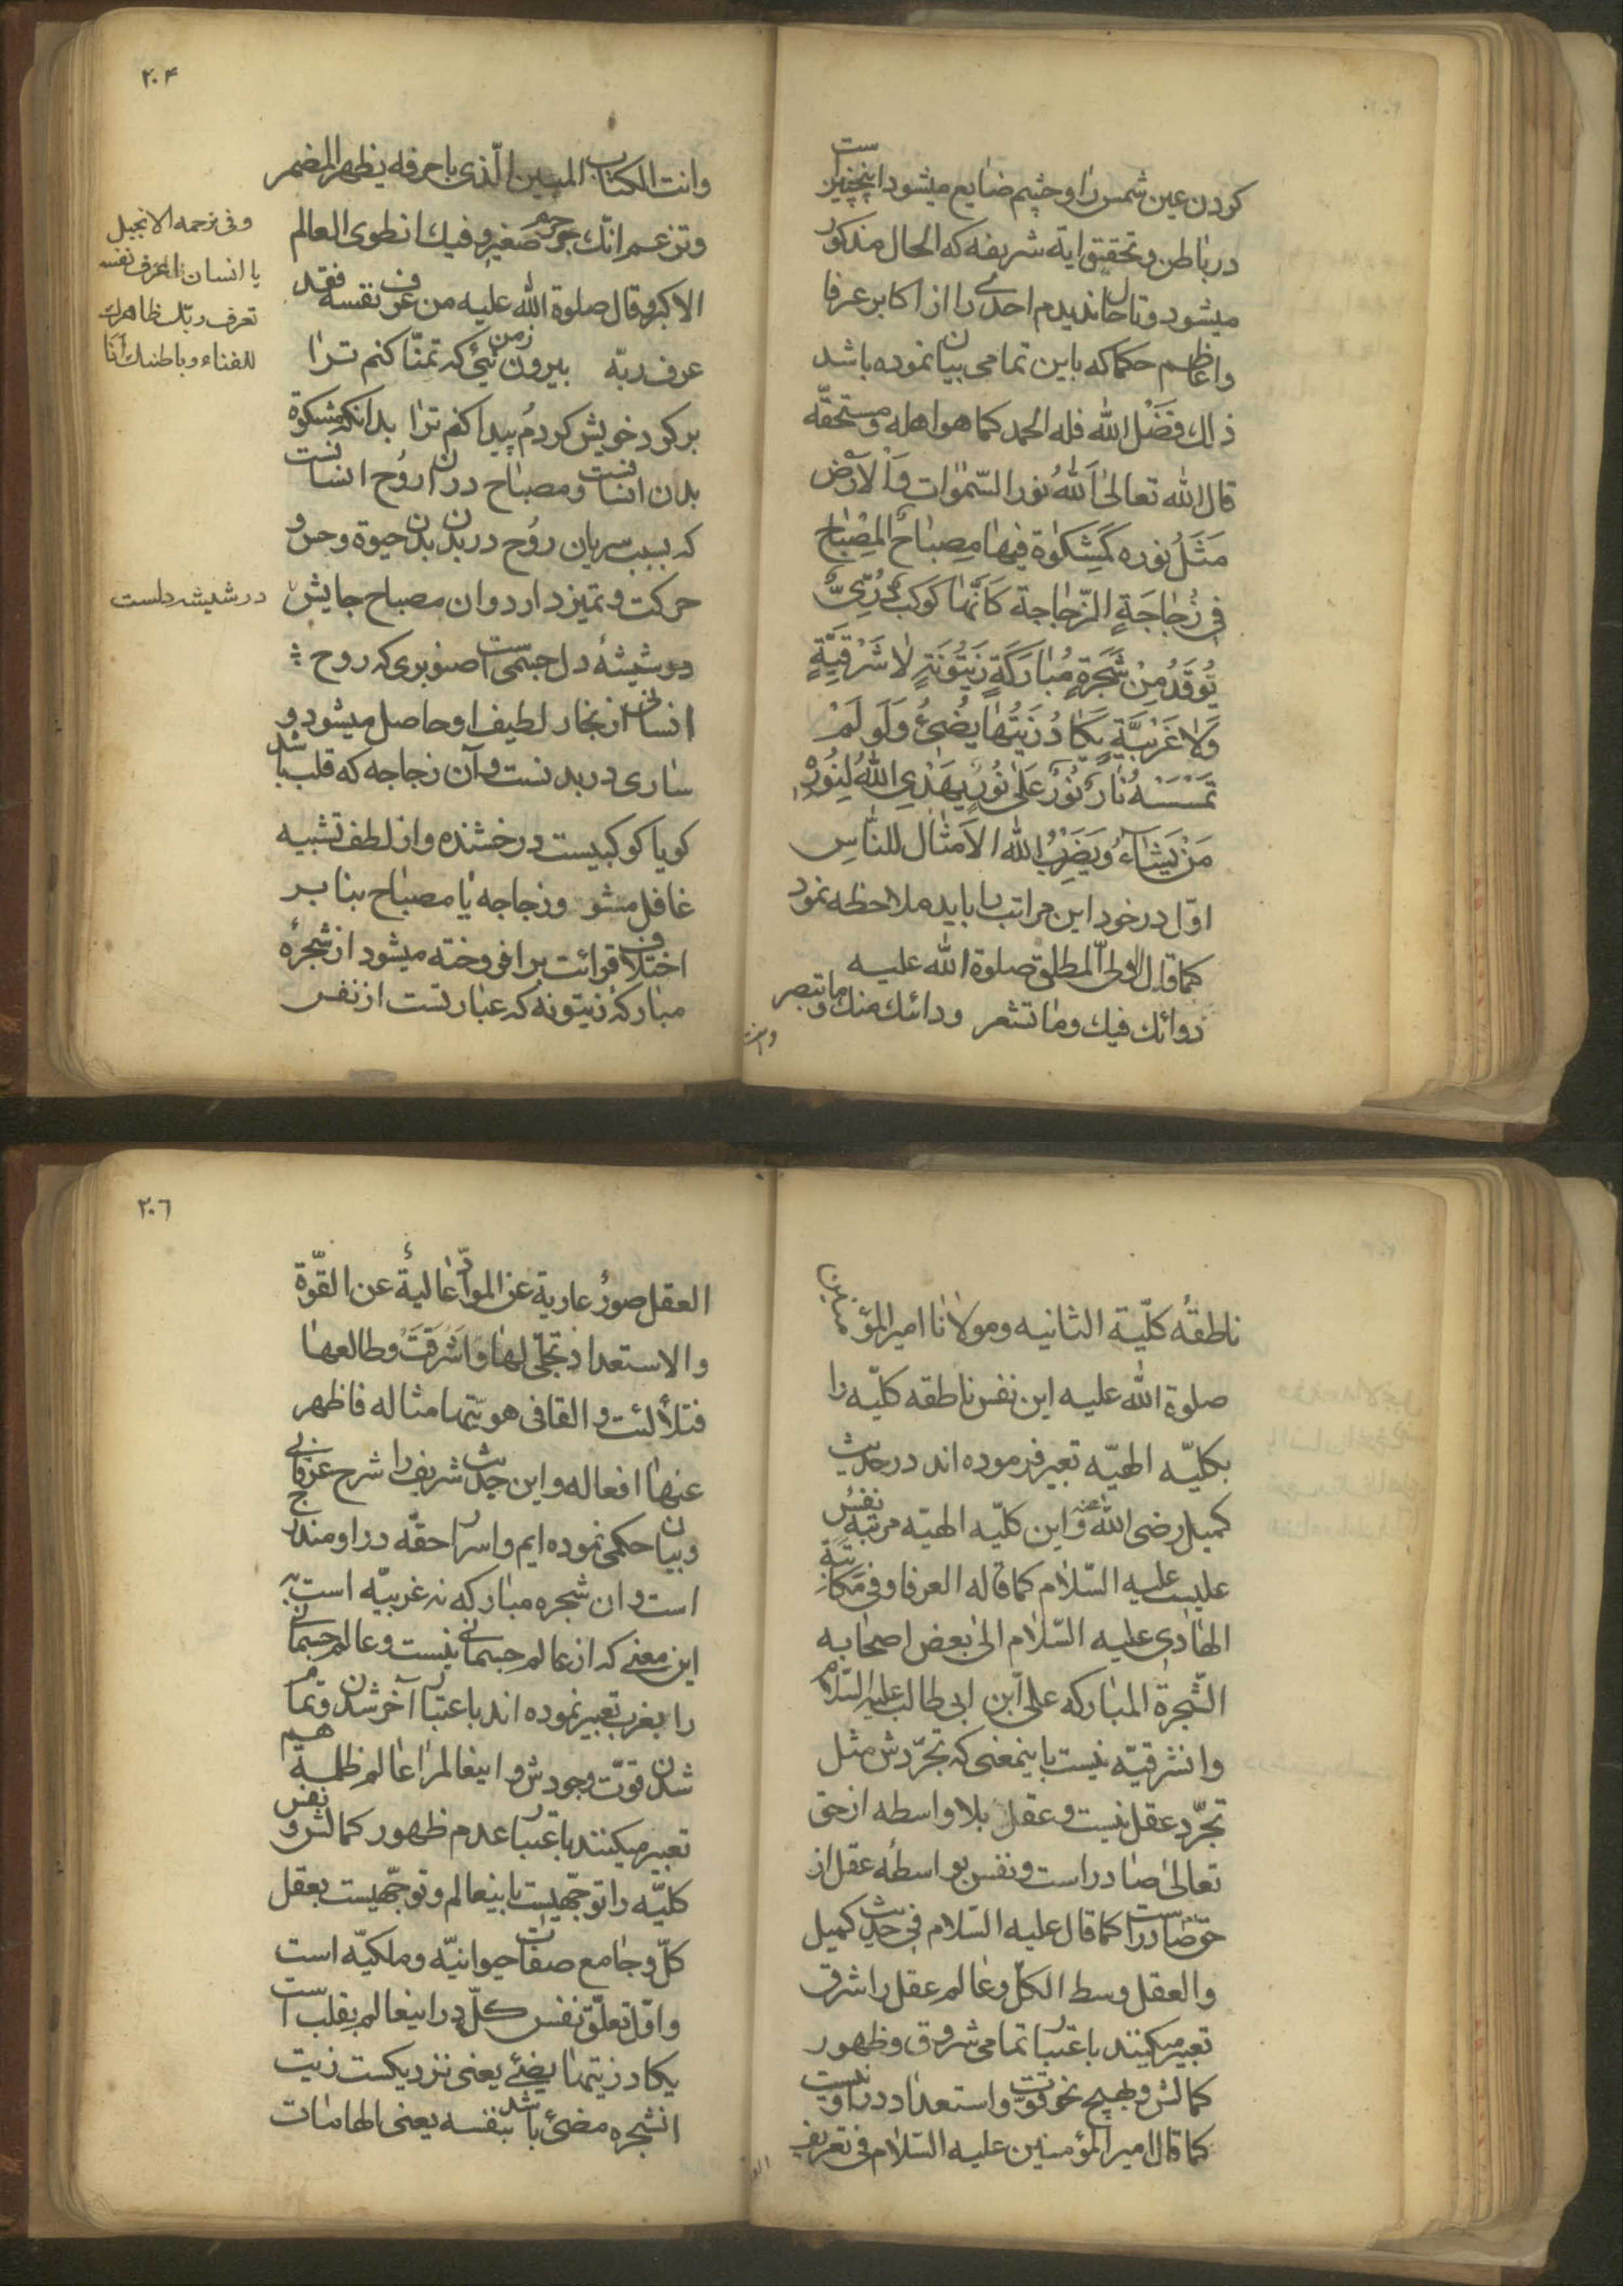 كردن عين شمس را و چشم ضايع ميشود اينچنين است
در باطن و تحقيق ايه شريفه كه الحال مذكور
ميشود و تا حال نديدم احدى را از اكابر عرفا
و اعاظم حكما كه باين تمامى بيان نموده باشد
ذلك فَضْل الله فله الحمد كما هو اهله و مستحقّه
قال الله تعالىٰ اَللهُ نور السّمٰوات وَالْاَرْض
مَثَلُ نوره كَمِشكوٰة فيهٰا مِصبٰاحٌ اَلمِصْبٰاح
فى زُجٰاجَةٍ الزّجٰاجة كَاَنّهٰا كَوكَبٌ دُرّىٌّ
تُوقَدُ مِنْ شَجَرةٍ مُبٰارَكَةٍ زَيتُونَةٍ لٰا شَرْقِيَّةٍ
وَلٰا غَرْبيَّةٍ يَكٰادُ زَيتُهٰا يُضىٓءُ وَلَو لَمْ
تَمْسَسْهُ نٰارٌ نُورٌ عَلىٰ نُورٍ يَهْدِى اللهُ لِنُورِه
مَنْ يَشٰٓاءُ وَيَضْرِبُ الله الاَمثٰال للنّٰاسِ
اوّل در خود اين مراتب را بايد ملاحظه نمود
كما قال الولىّ المطلق صلوة الله عليه
دوائك فيك و مٰا تشعر ودائك منك و ما تبصر
وانت
٢٠۴
وانت الكتاب المبين الّذى باحرفه يظهر المضمر
وتزعم انّك جرم صغير وفيك انطوى العالم
الاكبر و قال صلوة الله عليه من عرف نفسه فقد
عرف ربّه بيرون زمن نئى كه تمنّا كنم ترٰا
بر كرد خويش كردم پيدا كنم ترٰا بدانكه مشكوة
بدن انسانست و مصبٰاح در ان رُوح انسانست
كه بسبب سريان رُوح در بدن بدن حيوة و حس و
حركت و تميز دارد و ان مصباح جايش
در شيشه دلست
و شيشهٔ دل جسمى است صنوبرى كه روح
انسانى از بخار لطيف او حاصل ميشود و
سٰارى در بدنست و آن زجاجه كه قلب باشد
كويا كوكبيست درخشنده و از لطف تشبيه
غافل مشو و زجاجه يٰا مصبٰاح بنا بر
اختلاف قرائت برافروخته ميشود از شجرهٔ
مبٰاركهٔ زيتونه كه عبٰارتست از نفس
وفى ترجمه الانجيل
يا انسان اعرف نفسك
تعرف ربّك ظاهرك
للفناء وباطنك اَنَا
ناطقهٔ كلّيّة الثانيه و مولٰانٰا امير المؤمنين
صلوة الله عليه اين نفس ناطقه كلّيّه را
بكلّيّه الهيّه تعبير فرموده اند در حديث
كميل رضى الله عنه و اين كلّيّه الهيّه مرتبه نفس
عليست عليه السّلٰام كما قاله العرفا وفى مكاتبة
الهٰادى عليه السّلٰام الىٰ بعض اصحٰابه
الشّجرة المبٰاركه علىّ ابن ابى طالب عليه السّلام
و انشرقيّه نيست باينمعنى كه تجرّدش مثل
تجرّد عقل نيست و عقل بلا واسطه از حق
تعالىٰ صٰادر است و نفس بواسطهٔ عقل از
حقّ صٰادر است كما قال عليه السّلام فى حديث كميل
و العقل وسط الكلّ و عٰالم عقل را شرق
تعبير ميكنند باعتبار تمامى شروق و ظهور
كمالش و بهيچ نحو قوّت و استعدٰاد در او نيست
كما قال امير المؤمنين عليه السّلٰام فى تعريف
٢٠٦
العقل صورٌ عارية عن الموادّ عٰاليةٌ عن القّوة
والاستعداد تجلّى لهٰا و اَشرَقَتْ و طالعهٰا
فتلألئت و القا فى هويّتها مثاله فاظهر
عنهٰا افعاله و اين حديث شريف را شرح عرفانى
و بيان حكمى نموده ايم و اسرار حقّه در او مندرج
است و ان شجره مبٰاركه نه غربيّه است به
اين معنى كه از عالم جسمانى نيست و عالم جسمانى
را بغرب تعبير نموده اند باعتبار آخر شدن و تمام
شدن قوّت وجودش و اينعالم رٰا عٰالم ظلمة هم
تعبير ميكنند باعتبار عدم ظهور كمالش و نفس
كلّيّه را توجّهيست باينعالم و توجّهيست بعقل
كلّ و جٰامع صفات حيوانيّه و ملكيّه است
و اوّل تعلّق نفس كلّ در اينعالم بقلب است
يكاد زيتهٰا يضئ يعنى نزديكست زيت
انشجره مضئ باشد بنفسه يعنى الهامٰات